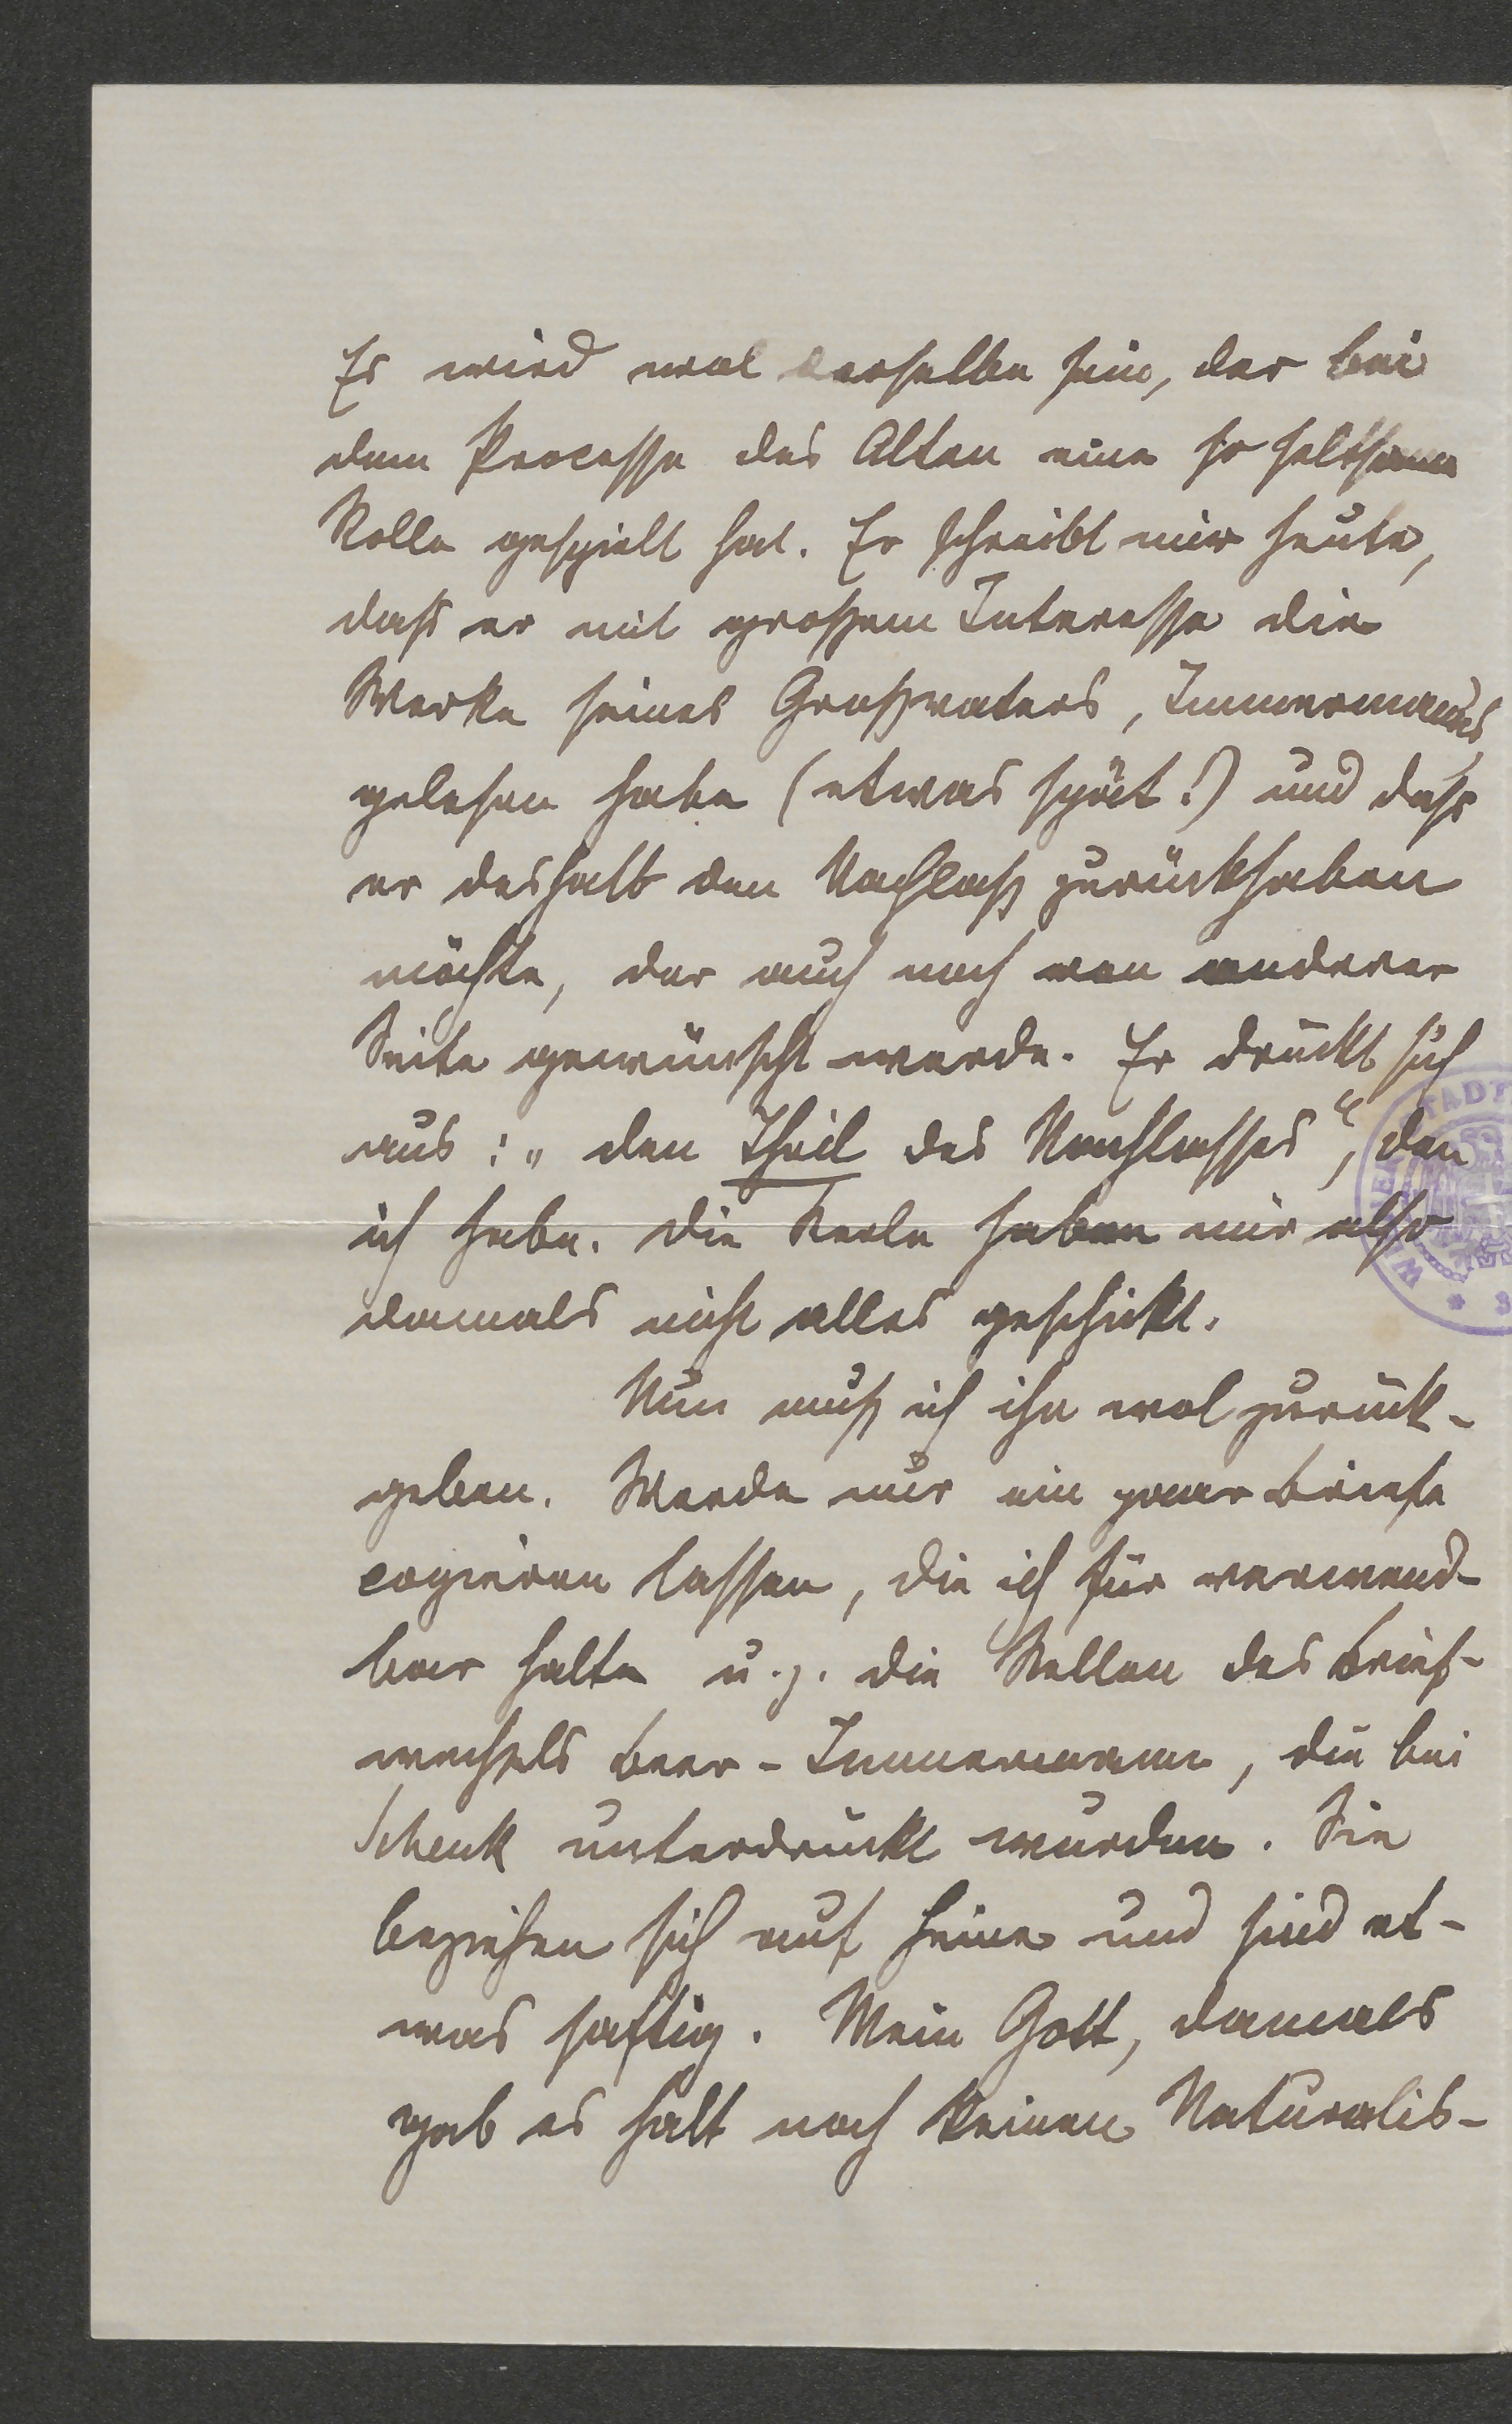 Es wird wol derselbe sein, der bei
dem Processe des Alten eine so seltsame
Rolle gespielt hat. Er schreibt mir heute,
daß er mit großem Interesse die
Werke seines Großvaters, Immermanns,
gelesen habe (etwas spät!) und daß
er deshalb den Nachlaß zurückhaben
möchte, der auch noch von anderer
Seite gewünscht werde. Er drückt sich
aus: „den Theil des Nachlasses“, den
ich habe. Die Kerle haben mir also
damals nicht alles geschickt.
Nun muß ich ihn wol zurück-
geben. Werde nur ein paar Briefe
copieren lassen, die ich für verwend-
bar halte u. z. die Stellen des Brief-
wechsels Beer-Immermann, die bei
Schenk unterdrückt wurden. Sie
beziehen sich auf Heine und sind et-
was saftig. Mein Gott, damals
gab es halt noch keinen Naturalis-